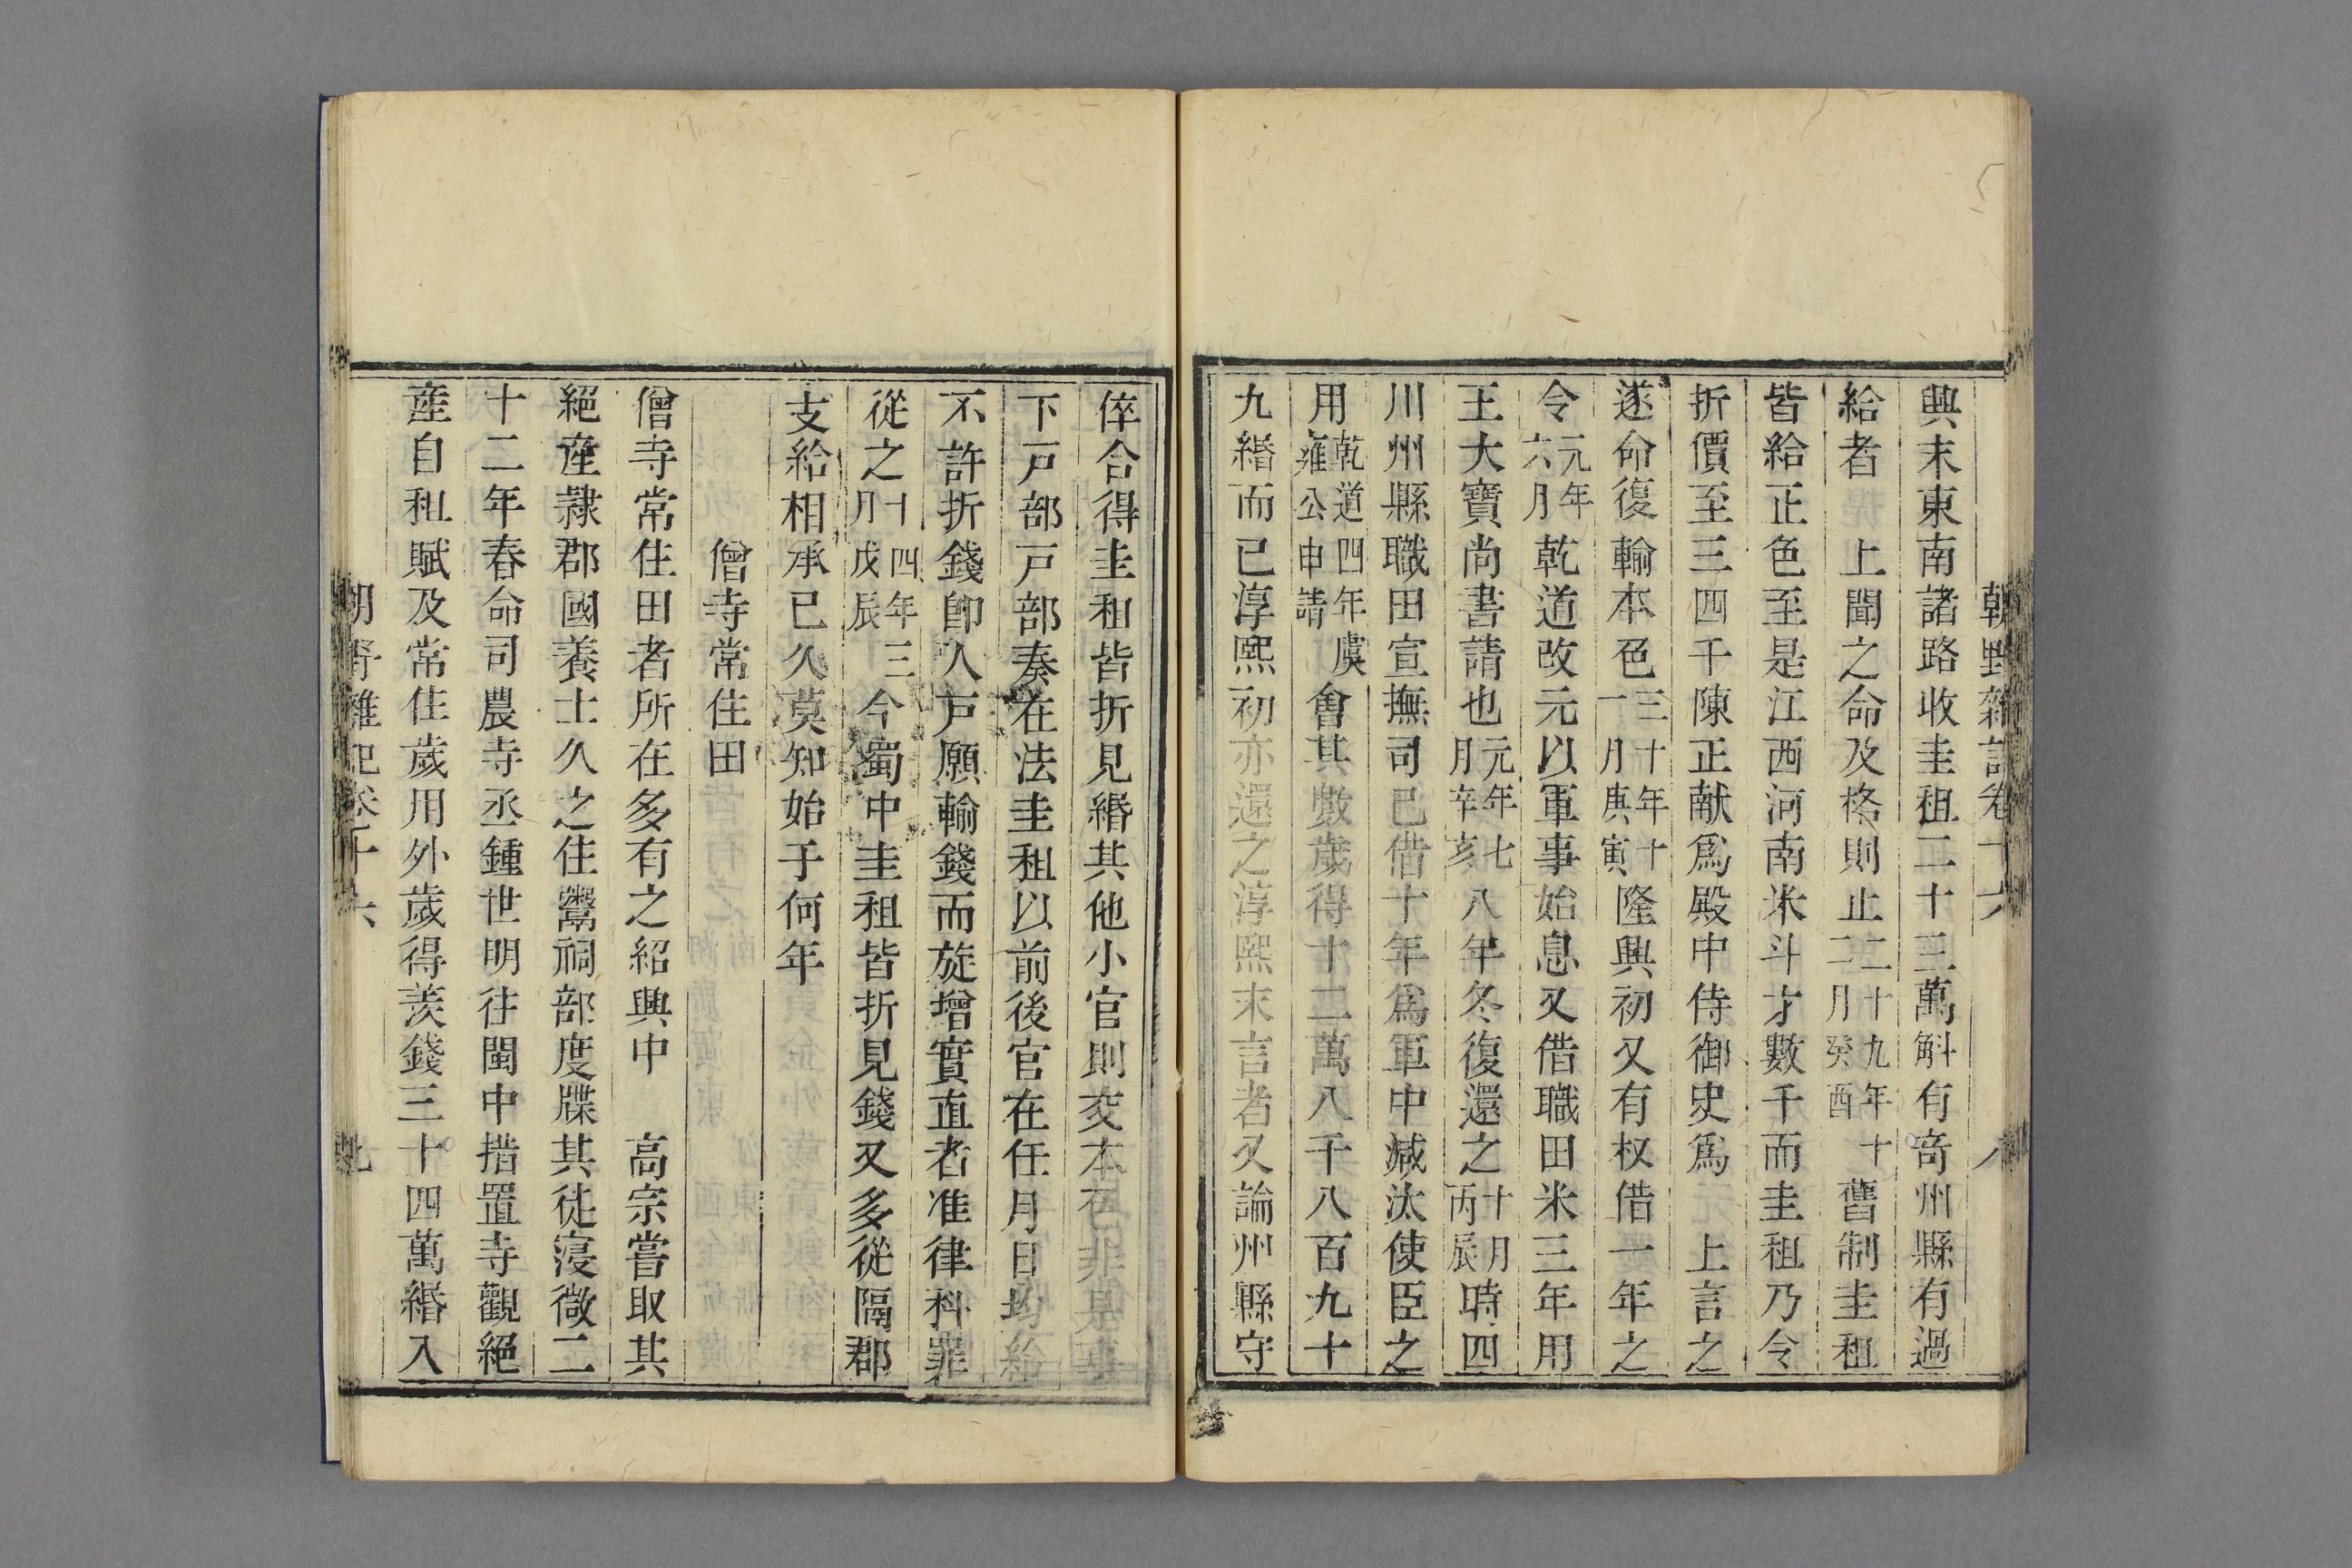 朝野雜記卷十六 八
興末東南諸路收圭租二十三萬斛有奇州縣有過
給者 上聞之命及格則止二十九年十二月癸酉舊制圭租
皆給正色至是江西河南米斗才數千而圭租乃令
折價至三四千陳正献爲殿中侍御史爲 上言之
遂命復輸本色三十年十一月庚寅隆興初又有权借一年之
令元年六月乾道改元以軍事始息又借職田米三年用
王大寶尚書請也元年七月辛亥八年冬復還之十月丙辰時四
川州縣職田宣撫司已借十年爲軍中減汰使臣之
用乾道四年虞雍公申請會其數歲得十二萬八千八百九十
九緡而已淳熙初亦還之淳熙末言者又論州縣守
倅合得圭租皆折見緡其他小官則支本色非是事
下戸部戸部奏在法圭租以前後官在任月日均給
不許折錢卽人戸願輸錢而旋增實直者准律科罪
從之十四年三月戊辰今蜀中圭租皆折見錢又多從隔郡
支給相承已久莫知始于何年
僧寺常住田
僧寺常住田者所在多有之紹興中 高宗嘗取其
絕産隸郡國養士久之住鬻祠部度牒其徒寖微二
十二年春命司農寺丞鍾世明往閩中措置寺觀絕
産自租賦及常住歲用外歲得羡錢三十四萬緡入
朝野雜記卷十六 九